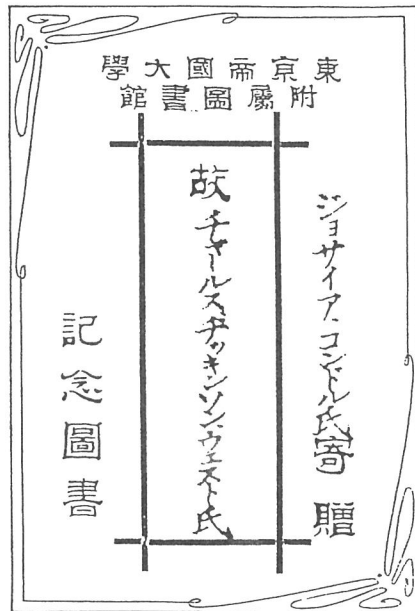 東京帝國大學
附屬圖書館
ジョサイア、コンドル氏寄贈
故チャールス、ヂッキンソン、ウェスト氏
記念圖書